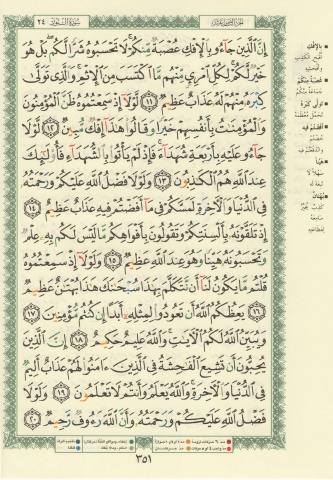 سورة النور ٢٤
إِنَّ الَّذِينَ جَاءُو بِالْإِفْكِ عُصْبَةٌ مِّنكُمْ لَا تَحْسَبُوهُ شَرًّا لَّكُم بَلْ هُوَ
خَيْرٌ لَّكُمْ لِكُلِّ امْرِئٍ مِّنْهُم مَّا اكْتَسَبَ مِنَ الْإِثْمِ وَالَّذِي تَوَلَّىٰ
كِبْرَهُ مِنْهُمْ لَهُ عَذَابٌ عَظِيمٌ ١١ لَّوْلَا إِذْ سَمِعْتُمُوهُ ظَنَّ الْمُؤْمِنُونَ
وَالْمُؤْمِنَاتُ بِأَنفُسِهِمْ خَيْرًا وَقَالُوا هَٰذَا إِفْكٌ مُّبِينٌ ١٢ لَّوْلَا
جَاءُو عَلَيْهِ بِأَرْبَعَةِ شُهَدَاءَ فَإِذْ لَمْ يَأْتُوا بِالشُّهَدَاءِ فَأُولَٰئِكَ
عِندَ اللَّهِ هُمُ الْكَاذِبُونَ ١٣ وَلَوْلَا فَضْلُ اللَّهِ عَلَيْكُمْ وَرَحْمَتُهُ
فِي الدُّنْيَا وَالْآخِرَةِ لَمَسَّكُمْ فِي مَا أَفَضْتُمْ فِيهِ عَذَابٌ عَظِيمٌ ١٤
إِذْ تَلَقَّوْنَهُ بِأَلْسِنَتِكُمْ وَتَقُولُونَ بِأَفْوَاهِكُم مَّا لَيْسَ لَكُم بِهِ عِلْمٌ
وَتَحْسَبُونَهُ هَيِّنًا وَهُوَ عِندَ اللَّهِ عَظِيمٌ ١٥ وَلَوْلَا إِذْ سَمِعْتُمُوهُ
قُلْتُم مَّا يَكُونُ لَنَا أَن نَّتَكَلَّمَ بِهَٰذَا سُبْحَانَكَ هَٰذَا بُهْتَانٌ عَظِيمٌ
١٦ يَعِظُكُمُ اللَّهُ أَن تَعُودُوا لِمِثْلِهِ أَبَدًا إِن كُنتُم مُّؤْمِنِينَ ١٧
وَيُبَيِّنُ اللَّهُ لَكُمُ الْآيَاتِ وَاللَّهُ عَلِيمٌ حَكِيمٌ ١٨ إِنَّ الَّذِينَ
يُحِبُّونَ أَن تَشِيعَ الْفَاحِشَةُ فِي الَّذِينَ آمَنُوا لَهُمْ عَذَابٌ أَلِيمٌ
فِي الدُّنْيَا وَالْآخِرَةِ وَاللَّهُ يَعْلَمُ وَأَنتُمْ لَا تَعْلَمُونَ ١٩ وَلَوْلَا
فَضْلُ اللَّهِ عَلَيْكُمْ وَرَحْمَتُهُ وَأَنَّ اللَّهَ رَءُوفٌ رَّحِيمٌ ٢٠
٣٥١
بالإفك
عصبة منكم
تولى كبره
أفضتم فيه
هينا
بهتان